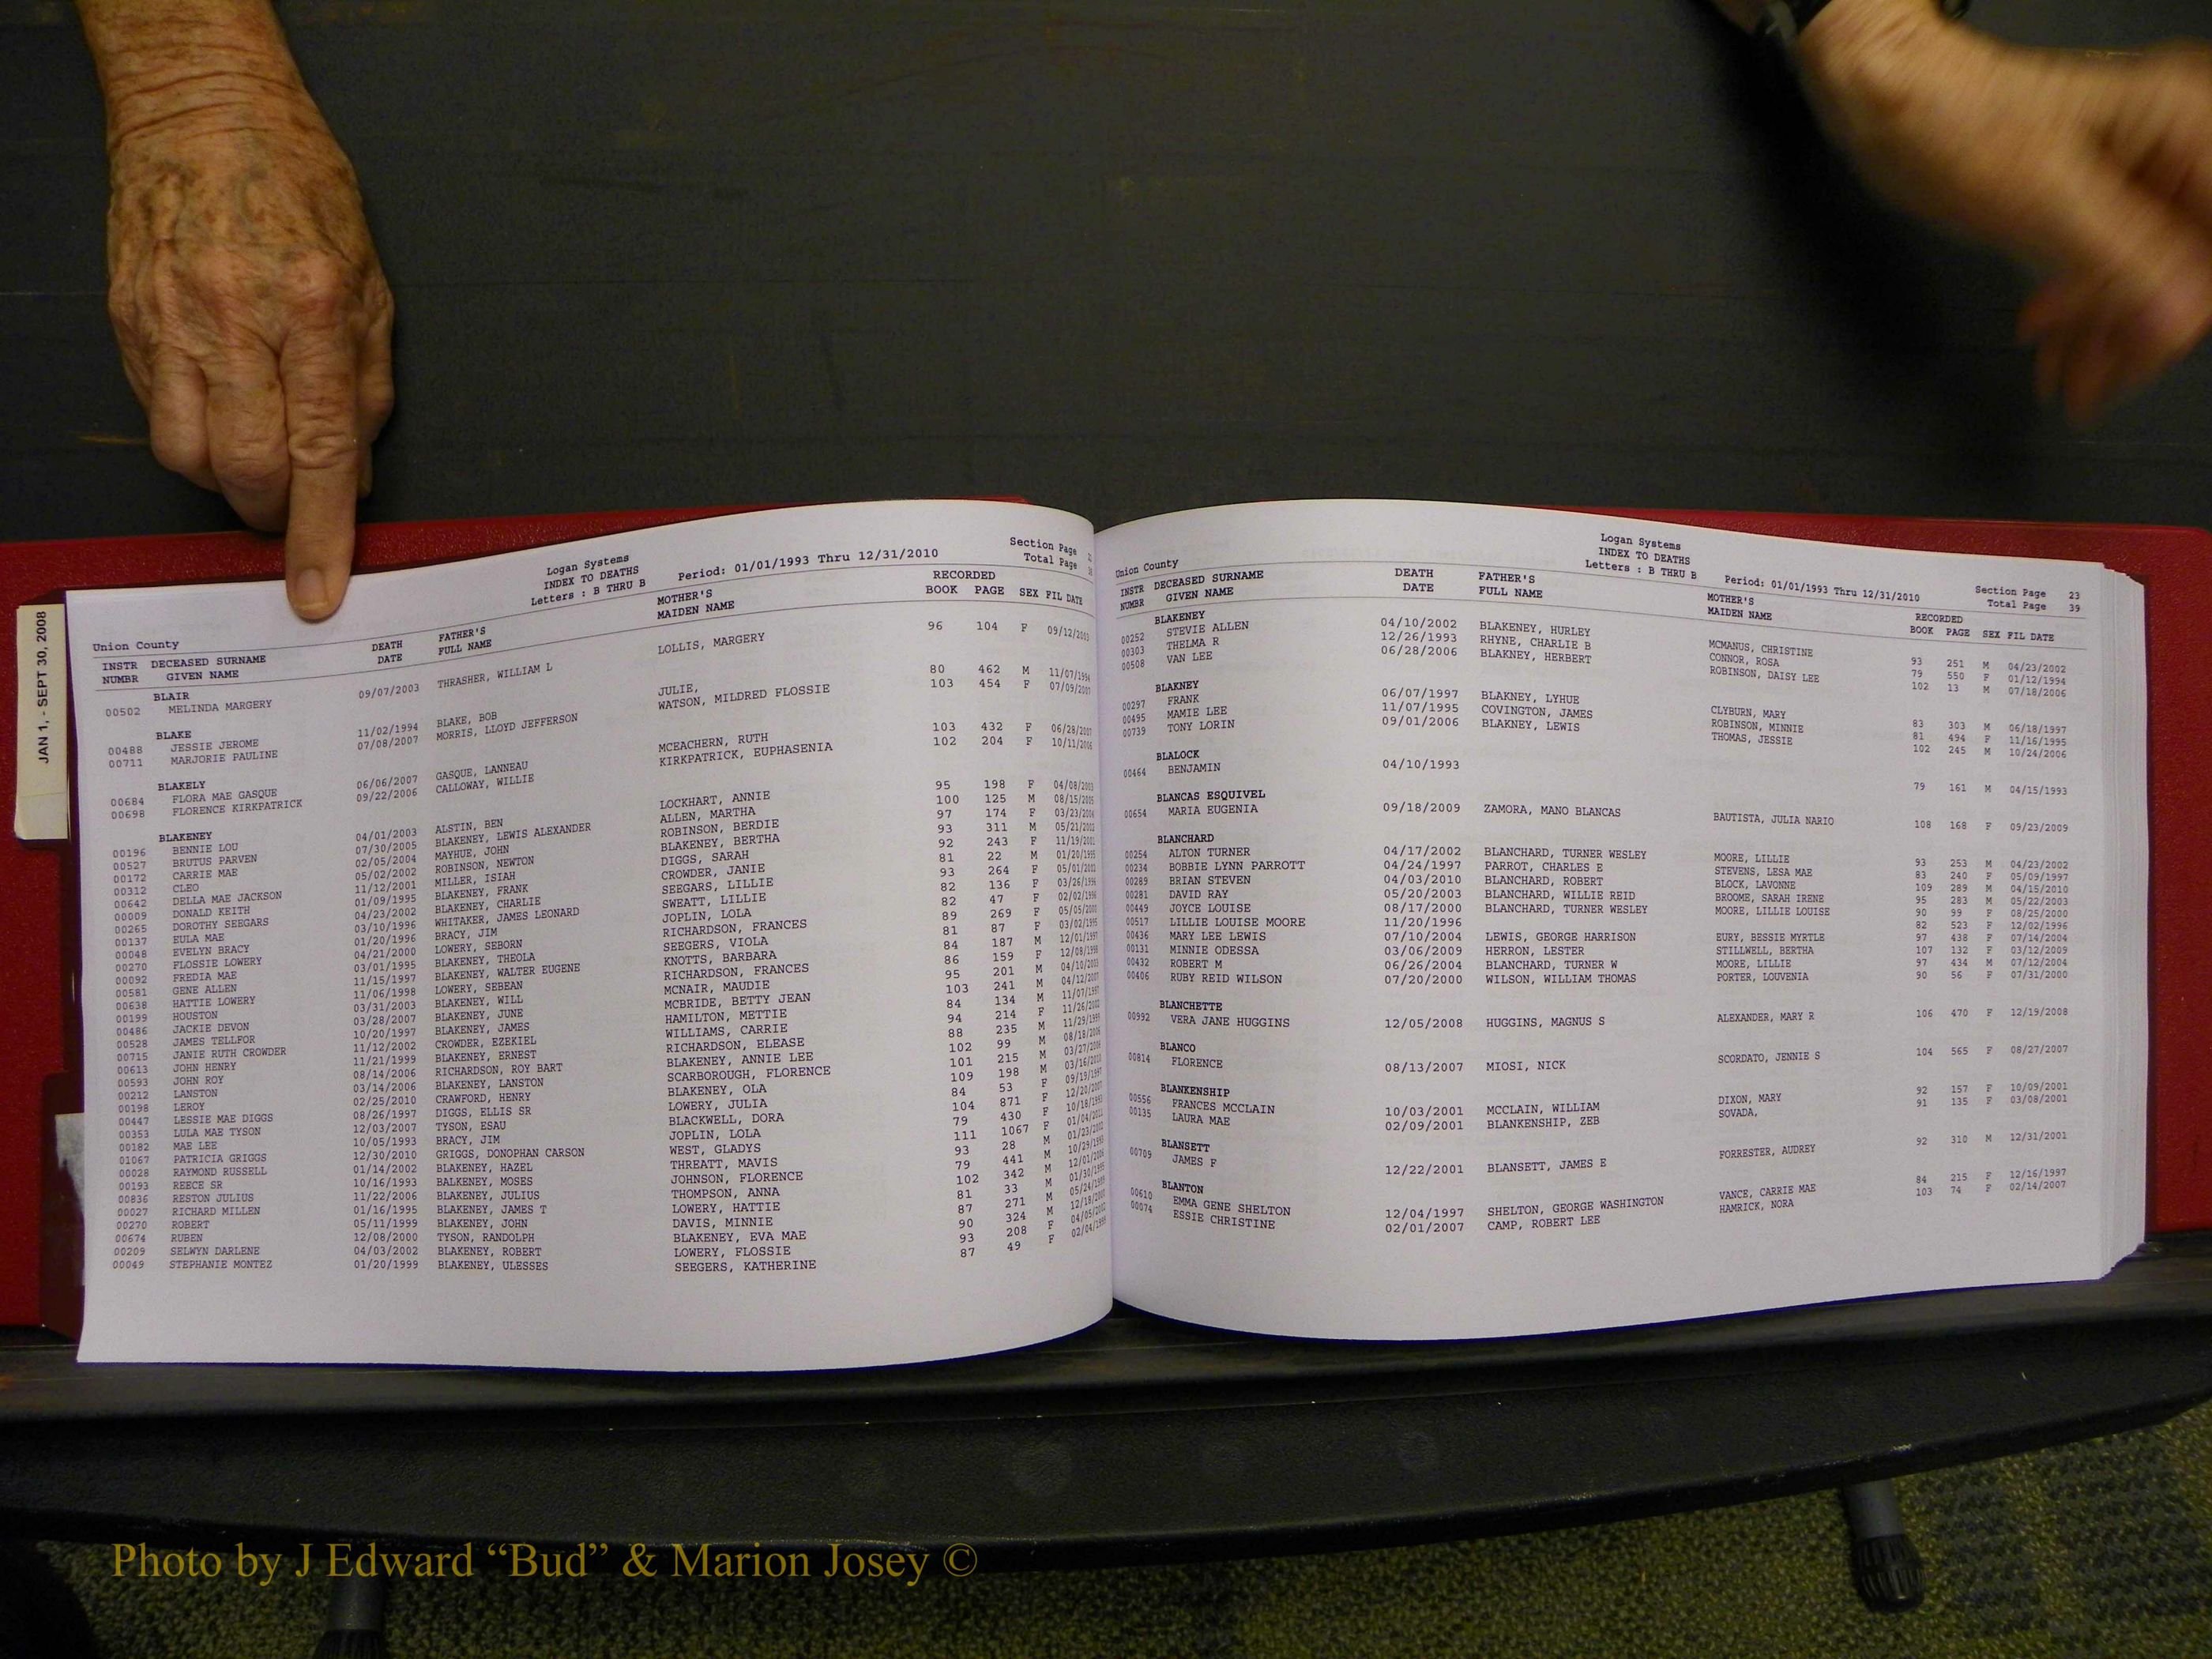 JAN 1, - SEPT 30, 2008
Logan Systems
INDEX TO DEATHS
Letters : B THRU B
Period: 01/01/1993 Thru 12/31/2010
Section Page
Total Page
Union County
INSTR DECEASED SURNAME DEATH FATHER'S MOTHER'S RECORDED
NUMBR GIVEN NAME DATE FULL NAME MAIDEN NAME BOOK PAGE SEX FIL DATE
BLAIR
00502 MELINDA MARGERY 09/07/2003 THRASHER, WILLIAM L LOLLIS, MARGERY 96 104 F 09/12/2003
BLAKE
00488 JESSIE JEROME 11/02/1994 BLAKE, BOB JULIE, 80 462 M 11/07/1994
00711 MARJORIE PAULINE 07/08/2007 MORRIS, LLOYD JEFFERSON WATSON, MILDRED FLOSSIE 103 454 F 07/09/2007
BLAKELY
00684 FLORA MAE GASQUE 06/06/2007 GASQUE, LANNEAU MCEACHERN, RUTH 103 432 F 06/28/2007
00698 FLORENCE KIRKPATRICK 09/22/2006 CALLOWAY, WILLIE KIRKPATRICK, EUPHASENIA 102 204 F 10/11/2006
BLAKENEY
00196 BENNIE LOU 04/01/2003 ALSTIN, BEN LOCKHART, ANNIE 95 198 F 04/08/2003
00527 BRUTUS PARVEN 07/30/2005 BLAKENEY, LEWIS ALEXANDER ALLEN, MARTHA 100 125 M 08/15/2005
00172 CARRIE MAE 02/05/2004 MAYHUE, JOHN ROBINSON, BERDIE 97 174 F 03/23/2004
00312 CLEO 05/02/2002 ROBINSON, NEWTON BLAKENEY, BERTHA 93 311 M 05/21/2002
00642 DELLA MAE JACKSON 11/12/2001 MILLER, ISIAH DIGGS, SARAH 92 243 F 11/19/2001
00009 DONALD KEITH 01/09/1995 BLAKENEY, FRANK CROWDER, JANIE 81 22 M 01/20/1995
00265 DOROTHY SEEGARS 04/23/2002 BLAKENEY, CHARLIE SEEGARS, LILLIE 93 264 F 05/01/2002
00137 EULA MAE 03/10/1996 WHITAKER, JAMES LEONARD SWEATT, LILLIE 82 136 F 03/26/1996
00048 EVELYN BRACY 01/20/1996 BRACY, JIM JOPLIN, LOLA 82 47 F 02/02/1996
00270 FLOSSIE LOWERY 04/21/2000 LOWERY, SEBORN RICHARDSON, FRANCES 89 269 F 05/05/2000
00092 FREDIA MAE 03/01/1995 BLAKENEY, THEOLA SEEGERS, VIOLA 81 87 F 03/02/1995
00581 GENE ALLEN 11/15/1997 BLAKENEY, WALTER EUGENE KNOTTS, BARBARA 84 187 M 12/01/1997
00638 HATTIE LOWERY 11/06/1998 LOWERY, SEBEAN RICHARDSON, FRANCES 86 159 F 12/08/1998
00199 HOUSTON 03/31/2003 BLAKENEY, WILL MCNAIR, MAUDIE 95 201 M 04/10/2003
00486 JACKIE DEVON 03/28/2007 BLAKENEY, JUNE MCBRIDE, BETTY JEAN 103 241 M 04/12/2007
00528 JAMES TELLFOR 10/20/1997 BLAKENEY, JAMES HAMILTON, METTIE 84 134 M 11/07/1997
00715 JANIE RUTH CROWDER 11/12/2002 CROWDER, EZEKIEL WILLIAMS, CARRIE 94 214 F 11/26/2002
00613 JOHN HENRY 11/21/1999 BLAKENEY, ERNEST RICHARDSON, ELEASE 88 235 M 11/29/1999
00593 JOHN ROY 08/14/2006 RICHARDSON, ROY BART BLAKENEY, ANNIE LEE 102 99 M 08/18/2006
00212 LANSTON 03/14/2006 BLAKENEY, LANSTON SCARBOROUGH, FLORENCE 101 215 M 03/27/2006
00198 LEROY 02/25/2010 CRAWFORD, HENRY BLAKENEY, OLA 109 198 M 03/16/2010
00447 LESSIE MAE DIGGS 08/26/1997 DIGGS, ELLIS SR LOWERY, JULIA 84 53 F 09/19/1997
00353 LULA MAE TYSON 12/03/2007 TYSON, ESAU BLACKWELL, DORA 104 871 F 12/20/2007
00182 MAE LEE 10/05/1993 BRACY, JIM JOPLIN, LOLA 79 430 F 10/18/1993
01067 PATRICIA GRIGGS 12/30/2010 GRIGGS, DONOPHAN CARSON WEST, GLADYS 111 1067 F 01/04/2011
00028 RAYMOND RUSSELL 01/14/2002 BLAKENEY, HAZEL THREATT, MAVIS 93 28 M 01/23/2002
00193 REECE SR 10/16/1993 BALKENEY, MOSES JOHNSON, FLORENCE 79 441 M 10/29/1993
00836 RESTON JULIUS 11/22/2006 BLAKENEY, JULIUS THOMPSON, ANNA 102 342 M 12/01/2006
00027 RICHARD MILLEN 01/16/1995 BLAKENEY, JAMES T LOWERY, HATTIE 81 33 M 01/30/1995
00270 ROBERT 05/11/1999 BLAKENEY, JOHN DAVIS, MINNIE 87 271 M 05/24/1999
00674 RUBEN 12/08/2000 TYSON, RANDOLPH BLAKENEY, EVA MAE 90 324 M 12/18/2000
00209 SELWYN DARLENE 04/03/2002 BLAKENEY, ROBERT LOWERY, FLOSSIE 93 208 F 04/05/2002
00049 STEPHANIE MONTEZ 01/20/1999 BLAKENEY, ULESSES SEEGERS, KATHERINE 87 49 F 02/04/1999
Logan Systems
INDEX TO DEATHS
Letters : B THRU B
Period: 01/01/1993 Thru 12/31/2010
Section Page 23
Total Page 39
Union County
INSTR DECEASED SURNAME DEATH FATHER'S MOTHER'S RECORDED
NUMBR GIVEN NAME DATE FULL NAME MAIDEN NAME BOOK PAGE SEX FIL DATE
BLAKENEY
00252 STEVIE ALLEN 04/10/2002 BLAKENEY, HURLEY MCMANUS, CHRISTINE 93 251 M 04/23/2002
00303 THELMA R 12/26/1993 RHYNE, CHARLIE B CONNOR, ROSA 79 550 F 01/12/1994
00508 VAN LEE 06/28/2006 BLAKNEY, HERBERT ROBINSON, DAISY LEE 102 13 M 07/18/2006
BLAKNEY
00297 FRANK 06/07/1997 BLAKNEY, LYHUE CLYBURN, MARY 83 303 M 06/18/1997
00495 MAMIE LEE 11/07/1995 COVINGTON, JAMES ROBINSON, MINNIE 81 494 F 11/16/1995
00739 TONY LORIN 09/01/2006 BLAKNEY, LEWIS THOMAS, JESSIE 102 245 M 10/24/2006
BLALOCK
00464 BENJAMIN 04/10/1993 79 161 M 04/15/1993
BLANCAS ESQUIVEL
00654 MARIA EUGENIA 09/18/2009 ZAMORA, MANO BLANCAS BAUTISTA, JULIA NARIO 108 168 F 09/23/2009
BLANCHARD
00254 ALTON TURNER 04/17/2002 BLANCHARD, TURNER WESLEY MOORE, LILLIE 93 253 M 04/23/2002
00234 BOBBIE LYNN PARROTT 04/24/1997 PARROT, CHARLES E STEVENS, LESA MAE 83 240 F 05/09/1997
00289 BRIAN STEVEN 04/03/2010 BLANCHARD, ROBERT BLOCK, LAVONNE 109 289 M 04/15/2010
00281 DAVID RAY 05/20/2003 BLANCHARD, WILLIE REID BROOME, SARAH IRENE 95 283 M 05/22/2003
00449 JOYCE LOUISE 08/17/2000 BLANCHARD, TURNER WESLEY MOORE, LILLIE LOUISE 90 99 F 08/25/2000
00517 LILLIE LOUISE MOORE 11/20/1996 82 523 F 12/02/1996
00436 MARY LEE LEWIS 07/10/2004 LEWIS, GEORGE HARRISON EURY, BESSIE MYRTLE 97 438 F 07/14/2004
00131 MINNIE ODESSA 03/06/2009 HERRON, LESTER STILLWELL, BERTHA 107 132 F 03/12/2009
00432 ROBERT M 06/26/2004 BLANCHARD, TURNER W MOORE, LILLIE 97 434 M 07/12/2004
00406 RUBY REID WILSON 07/20/2000 WILSON, WILLIAM THOMAS PORTER, LOUVENIA 90 56 F 07/31/2000
BLANCHETTE
00992 VERA JANE HUGGINS 12/05/2008 HUGGINS, MAGNUS S ALEXANDER, MARY R 106 470 F 12/19/2008
BLANCO
00814 FLORENCE 08/13/2007 MIOSI, NICK SCORDATO, JENNIE S 104 565 F 08/27/2007
BLANKENSHIP
00556 FRANCES MCCLAIN 10/03/2001 MCCLAIN, WILLIAM DIXON, MARY 92 157 F 10/09/2001
00135 LAURA MAE 02/09/2001 BLANKENSHIP, ZEB SOVADA, 91 135 F 03/08/2001
BLANSETT
00709 JAMES F 12/22/2001 BLANSETT, JAMES E FORRESTER, AUDREY 92 310 M 12/31/2001
BLANTON
00610 EMMA GENE SHELTON 12/04/1997 SHELTON, GEORGE WASHINGTON VANCE, CARRIE MAE 84 215 F 12/16/1997
00074 ESSIE CHRISTINE 02/01/2007 CAMP, ROBERT LEE HAMRICK, NORA 103 74 F 02/14/2007
Photo by J Edward “Bud” & Marion Josey ©